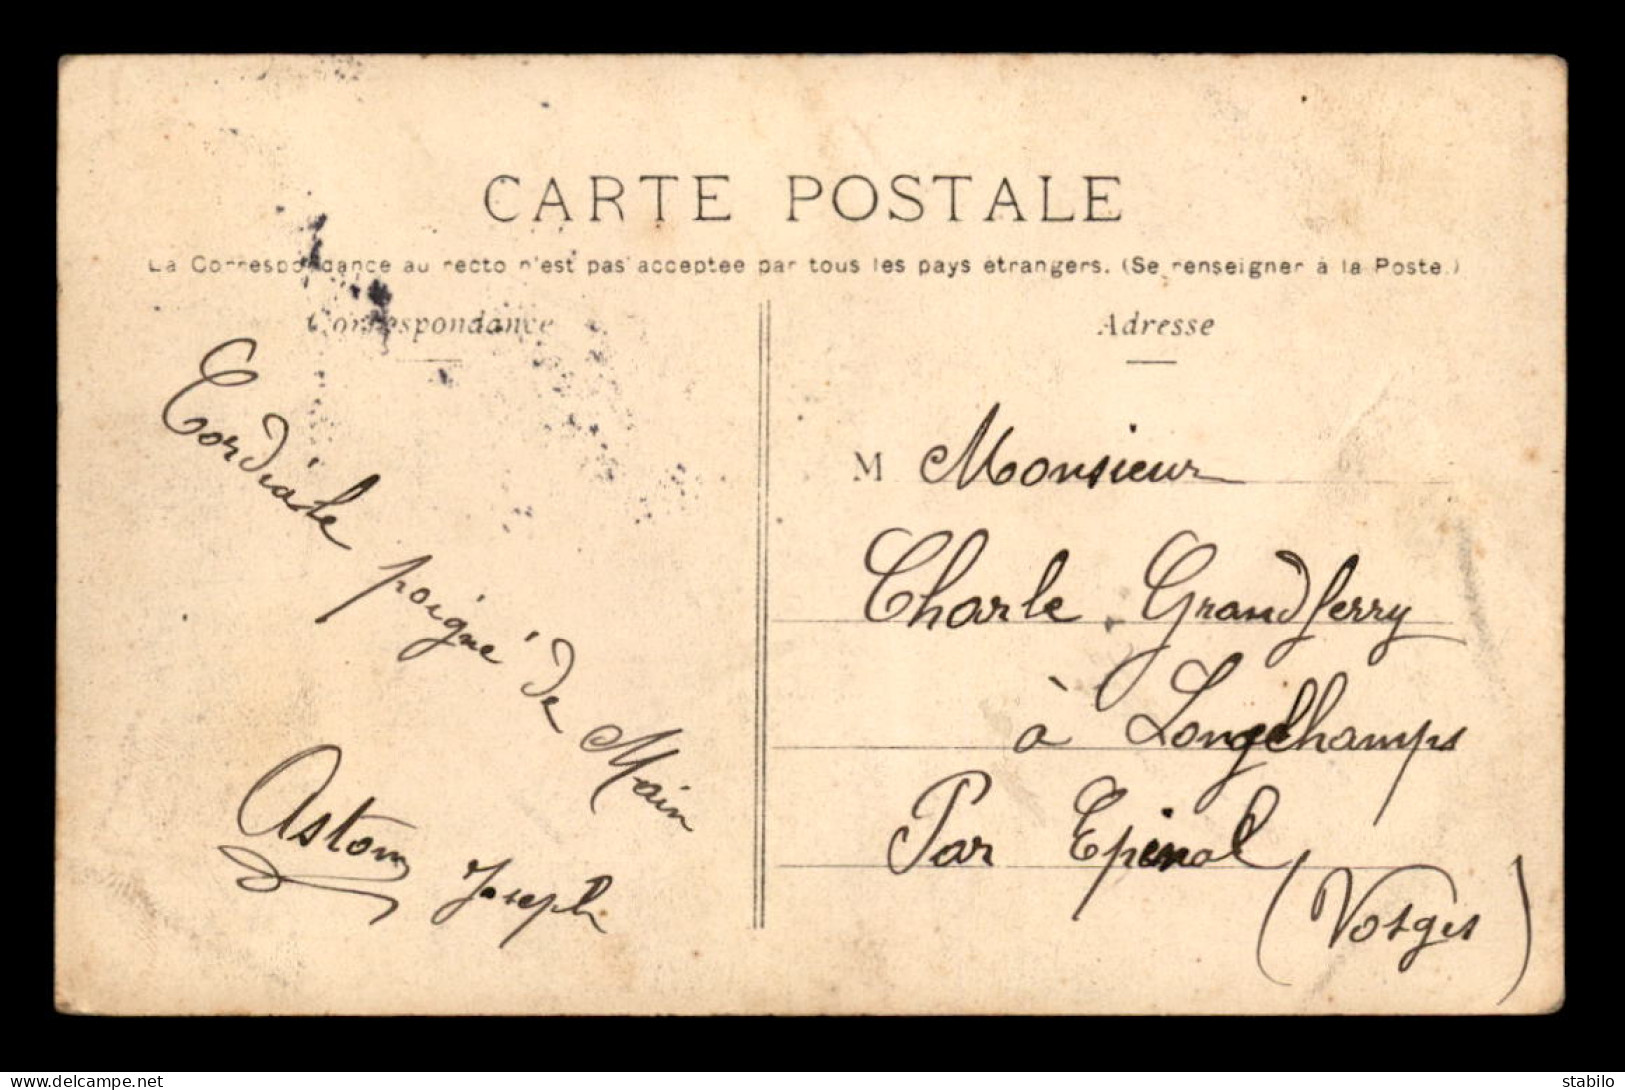 CARTE POSTALE
La Correspondance au recto n'est pas acceptée par tous les pays étrangers. (Se renseigner à la Poste.)
Correspondance
Cordiale
poigné de Main
Joseph
Adresse
M Monsieur
Charle Grandferry
à Longchamps
Par Epinal
(Vosges)
www.delcampe.net
stabilo